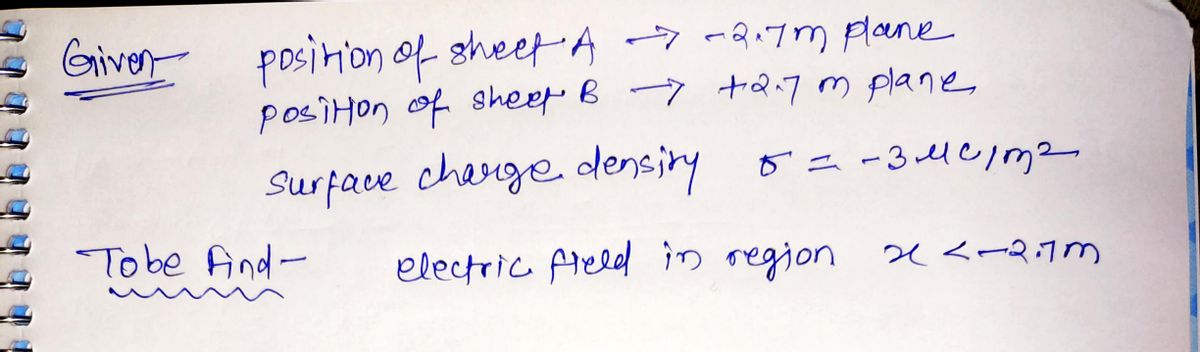 Given- position of sheet A → -2.7m plane
position of sheet B → +2.7 m plane
surface charge density σ = -3 μC/m²
To be find- electric field in region x < -2.7m